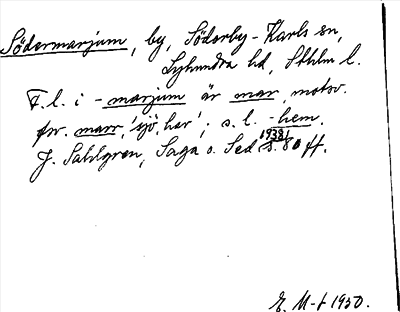 Södermarjum, by, Söderby-Karls sn,
Lyhundra hd, Sthlm l.
F. l. i -marjum är mar, motsv.
fvr. marr, 'sjö, hav'; s. l. -hem.
J. Sahlgren, Saga o. Sed 1938, s. 80 ff.
E. M-t 1950.